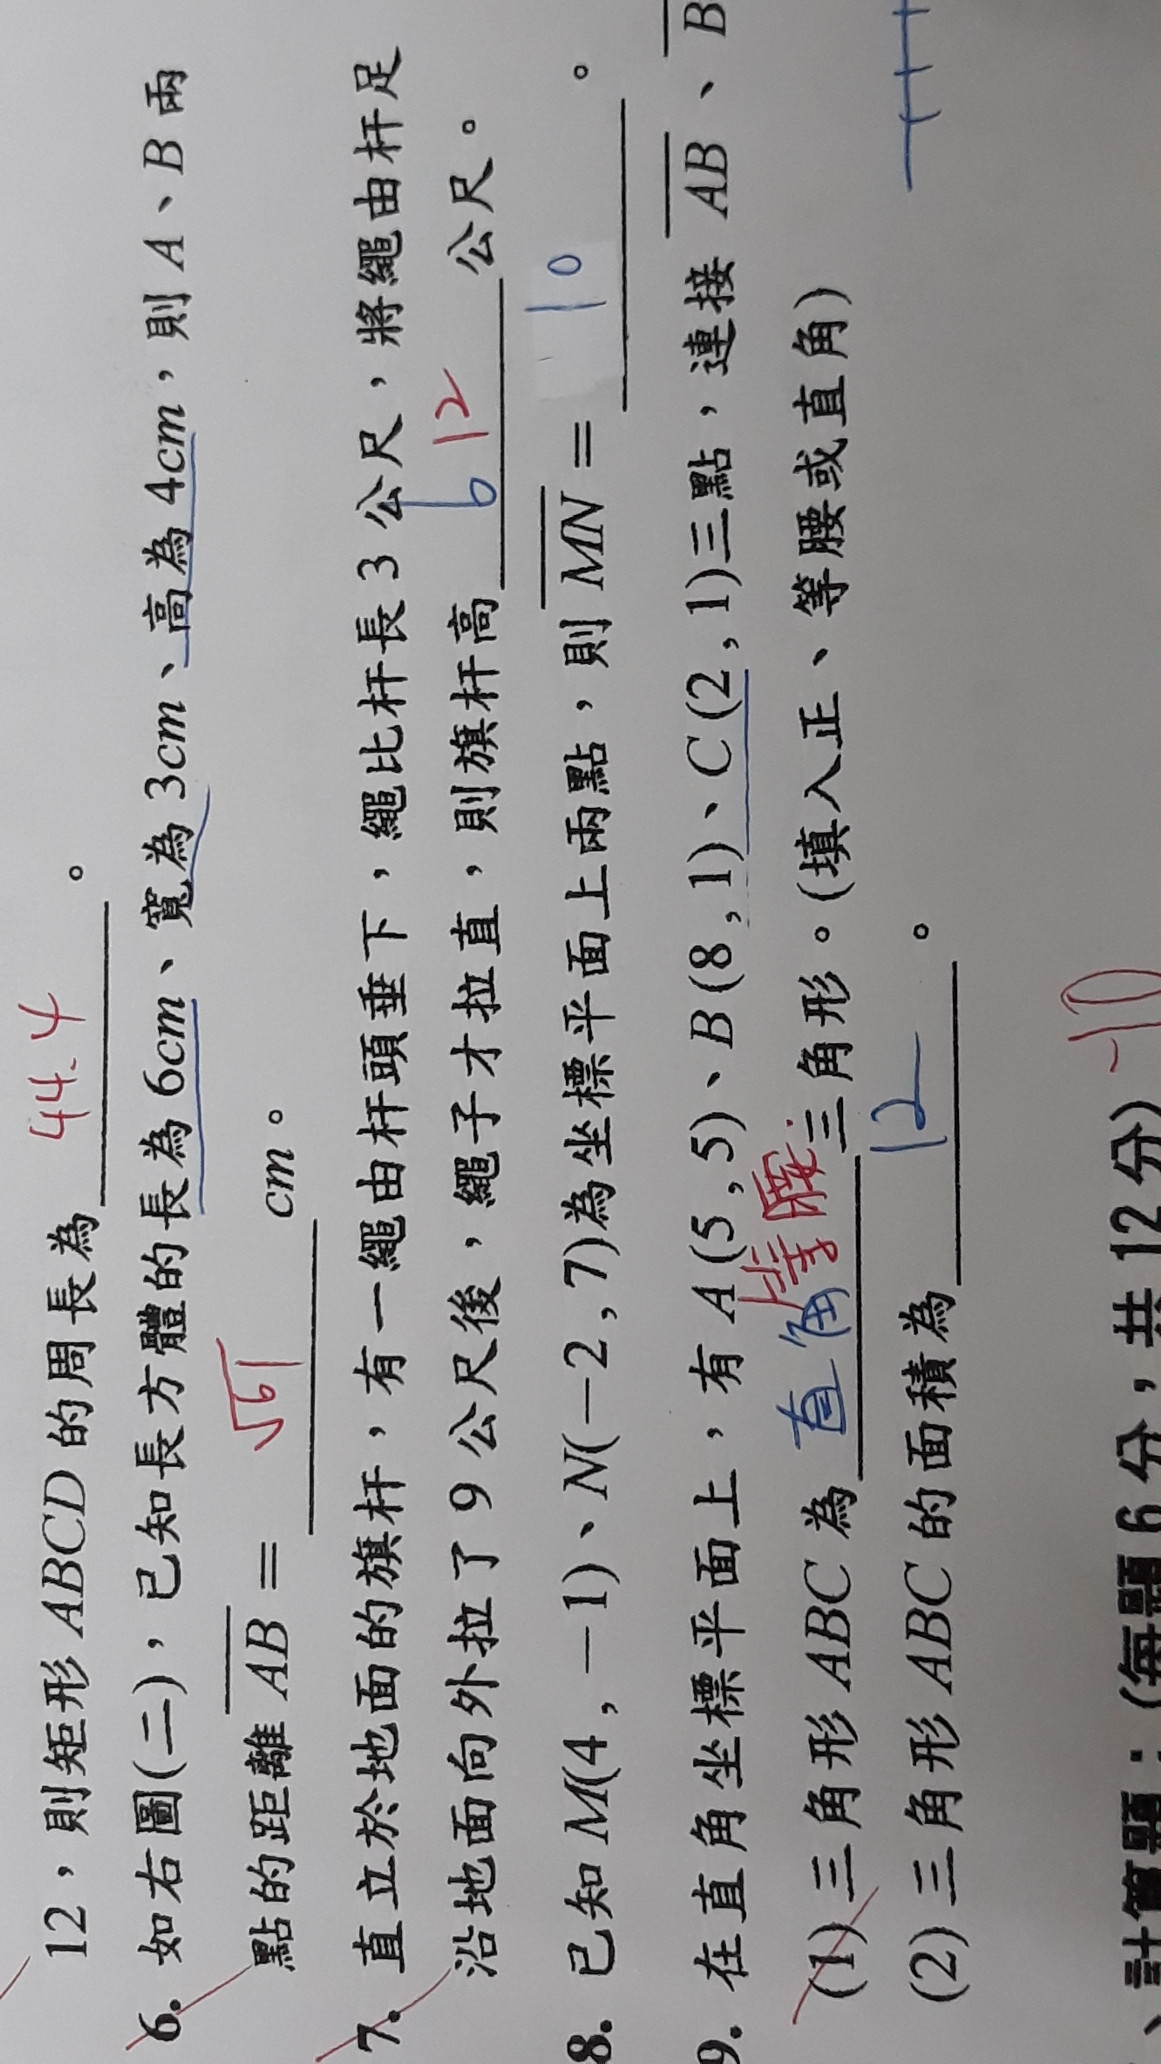 44.4
12，則矩形 ABCD 的周長為 。
6. 如右圖(二)，已知長方體的長為 6cm、寬為 3cm、高為 4cm，則 A、B 兩
點的距離 AB = √61 cm。
7. 直立於地面的旗杆，有一繩由杆頭垂下，繩比杆長 3 公尺，將繩由杆足
沿地面向外拉了 9 公尺後，繩子才拉直，則旗杆高 6 12 公尺。
8. 已知 M(4,−1)、N(−2,7)為坐標平面上兩點，則 MN = 10 。
9. 在直角坐標平面上，有 A(5,5)、B(8,1)、C(2,1)三點，連接 AB、B
等腰
(1) 三角形 ABC 為 直角 三角形。(填入正、等腰或直角)
(2) 三角形 ABC 的面積為 12 。
-10
、計算題：(每題 6 分，共 12 分)